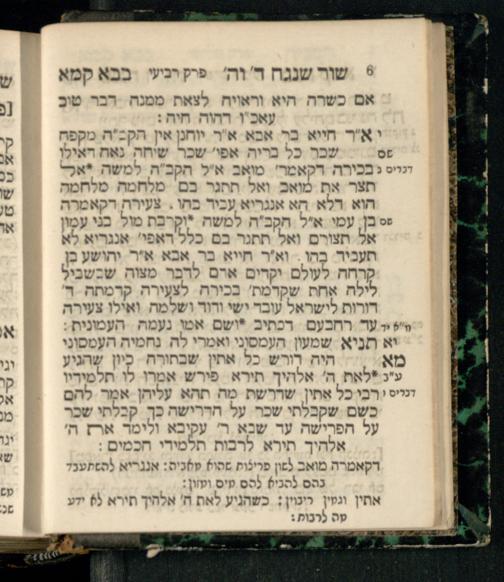 6 שור שנגח ד' וה' פרק רביעי בבא קמא
אם כשרה היא וראויה לצאת ממנה דבר טוב
עאכ"ו דהוה חיה:
י א"ר חייא בר אבא א"ר יוחנן אין הקב"ה מקפח
שם שכר כל בריה אפי' שכר שיחה נאה דאילו
דברים ב בכירה דקאמר' מואב א"ל הקב"ה למשה *אל
תצר את מואב ואל תתגר בם מלחמה מלחמה
הוא דלא הא אנגריא עביד בהו. צעירה דקאמרה
שם בן עמי א"ל הקב"ה למשה *וקרבת מול בני עמון
אל תצורם ואל תתגר בם כלל דאפי' אנגריא לא
תעביד בהו. וא"ר חייא בר אבא א"ר יהושע בן
קרחה לעולם יקדים אדם לדבר מצוה שבשביל
לילה אחת שקדמת' בכירה לצעירה קדמתה ד'
דורות לישראל עובד ישי ודוד ושלמה ואילו צעירה
מ"א יד עד רחבעם דכתיב *ושם אמו נעמה העמונית:
יא תניא שמעון העמסוני ואמרי לה נחמיה העמסוני
מא היה דורש כל אתין שבתורה כיון שהגיע
ע"ב *לאת ה' אלהיך תירא פירש אמרו לו תלמידיו
דברים ו רבי כל אתין שדרשת מה תהא עליהן אמר להם
כשם שקבלתי שכר על הדרישה כך קבלתי שכר
על הפרישה עד שבא ר' עקיבא ולימד את ה'
אלהיך תירא לרבות תלמידי חכמים:
דקאמרה מואב לשון פריצות שהוא מאביה: אנגריא להשתעבד
בהם להביא להם מים ומזון:
אתין וגמין ריבוין: כשהגיע לאת ה' אלהיך תירא לא ידע
מה לרבות: